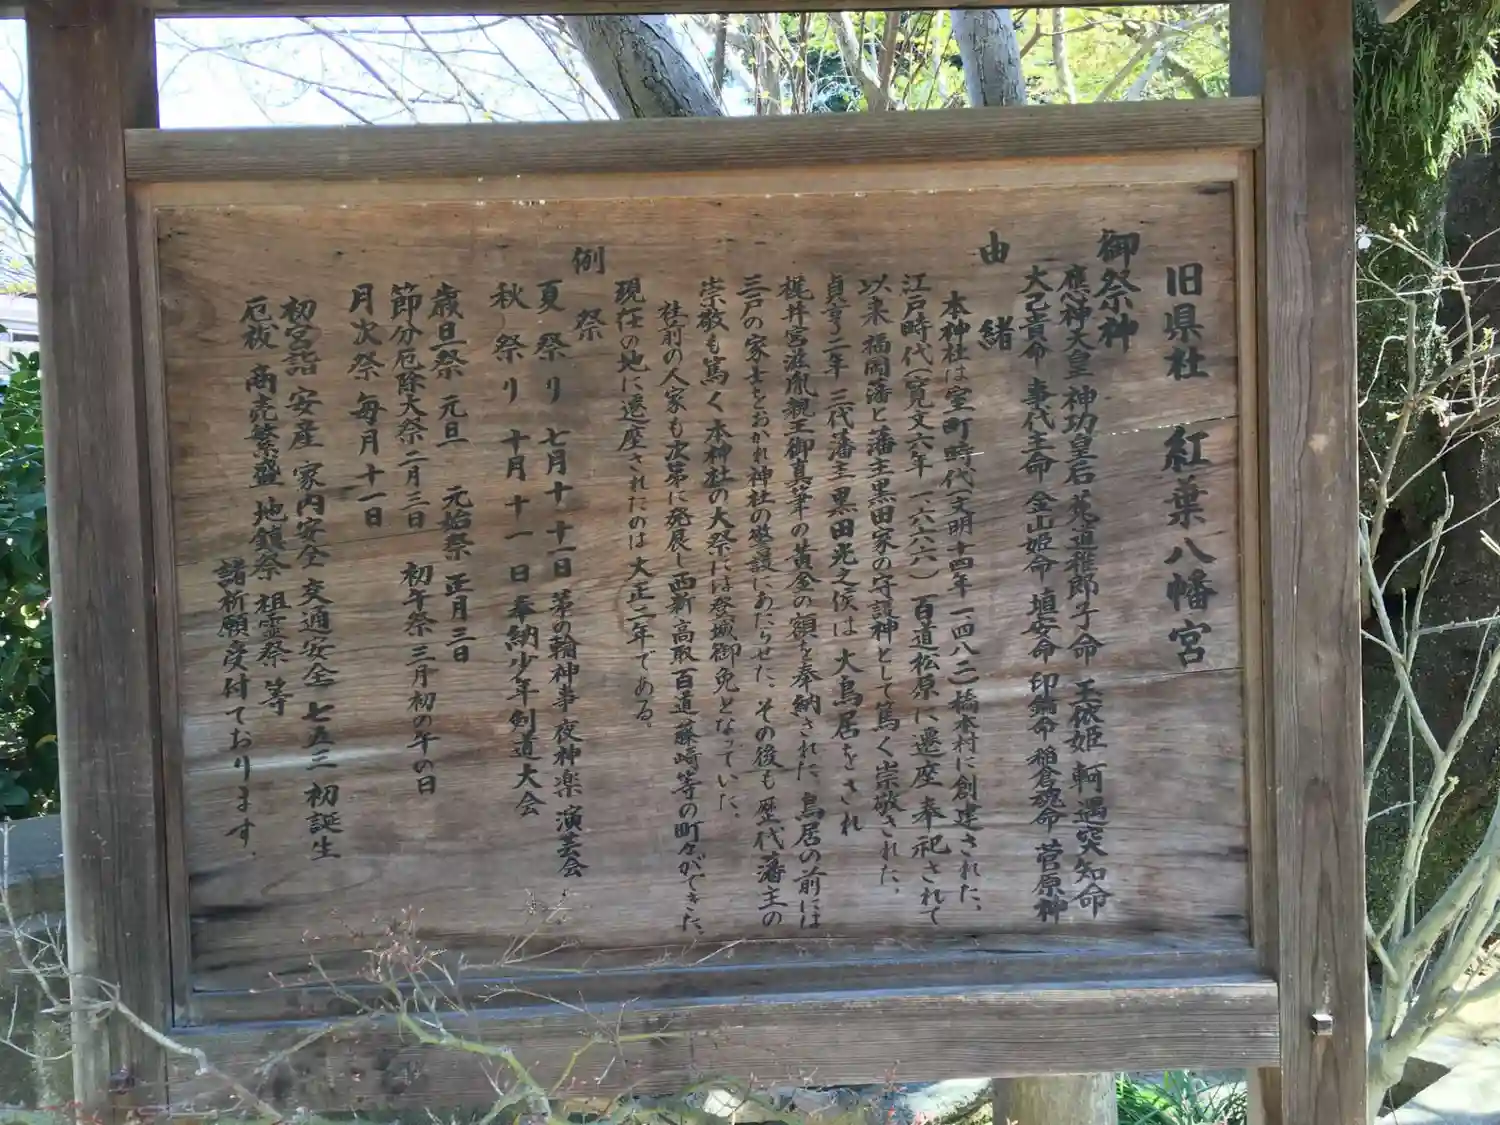 旧県社 紅葉八幡宮
御祭神
應神天皇 神功皇后 菟道稚郎子命 玉依姫 軻遇突知命
大己貴命 事代主命 金山姫命 埴安命 印鑰命 稲倉魂命 菅原神
由緒
本神社は室町時代(文明十四年一四八二)橋本村に創建された、
江戸時代(寛文六年 一六六六)百道松原に遷座奉祀されて
以来福岡藩と藩主黒田家の守護神として篤く崇敬された、
貞享二年 三代藩主 黒田光之侯は 大鳥居をされ
梶井宮滋胤親王御真筆の黄金の額を奉納された、鳥居の前には
三戸の家士をおかれ神社の警護にあたらせた。その後も歴代藩主の
崇敬も篤く本神社の大祭には登城御免となっていた、
社前の人家も次第に発展し西新高取百道藤崎等の町々ができた、
現在の地に遷座されたのは大正二年である。
例祭
夏祭り 七月十、十一日 茅の輪神事 夜神楽 演芸会
秋祭り 十月十一日奉納少年剣道大会
歳旦祭 元旦 元始祭 正月三日
節分厄除大祭二月三日 初午祭 三月初の午の日
月次祭 毎月十一日
初宮詣 安産 家内安全 交通安全 七五三 初誕生
厄祓 商売繁盛 地鎮祭 祖霊祭 等
諸祈願受付ております.